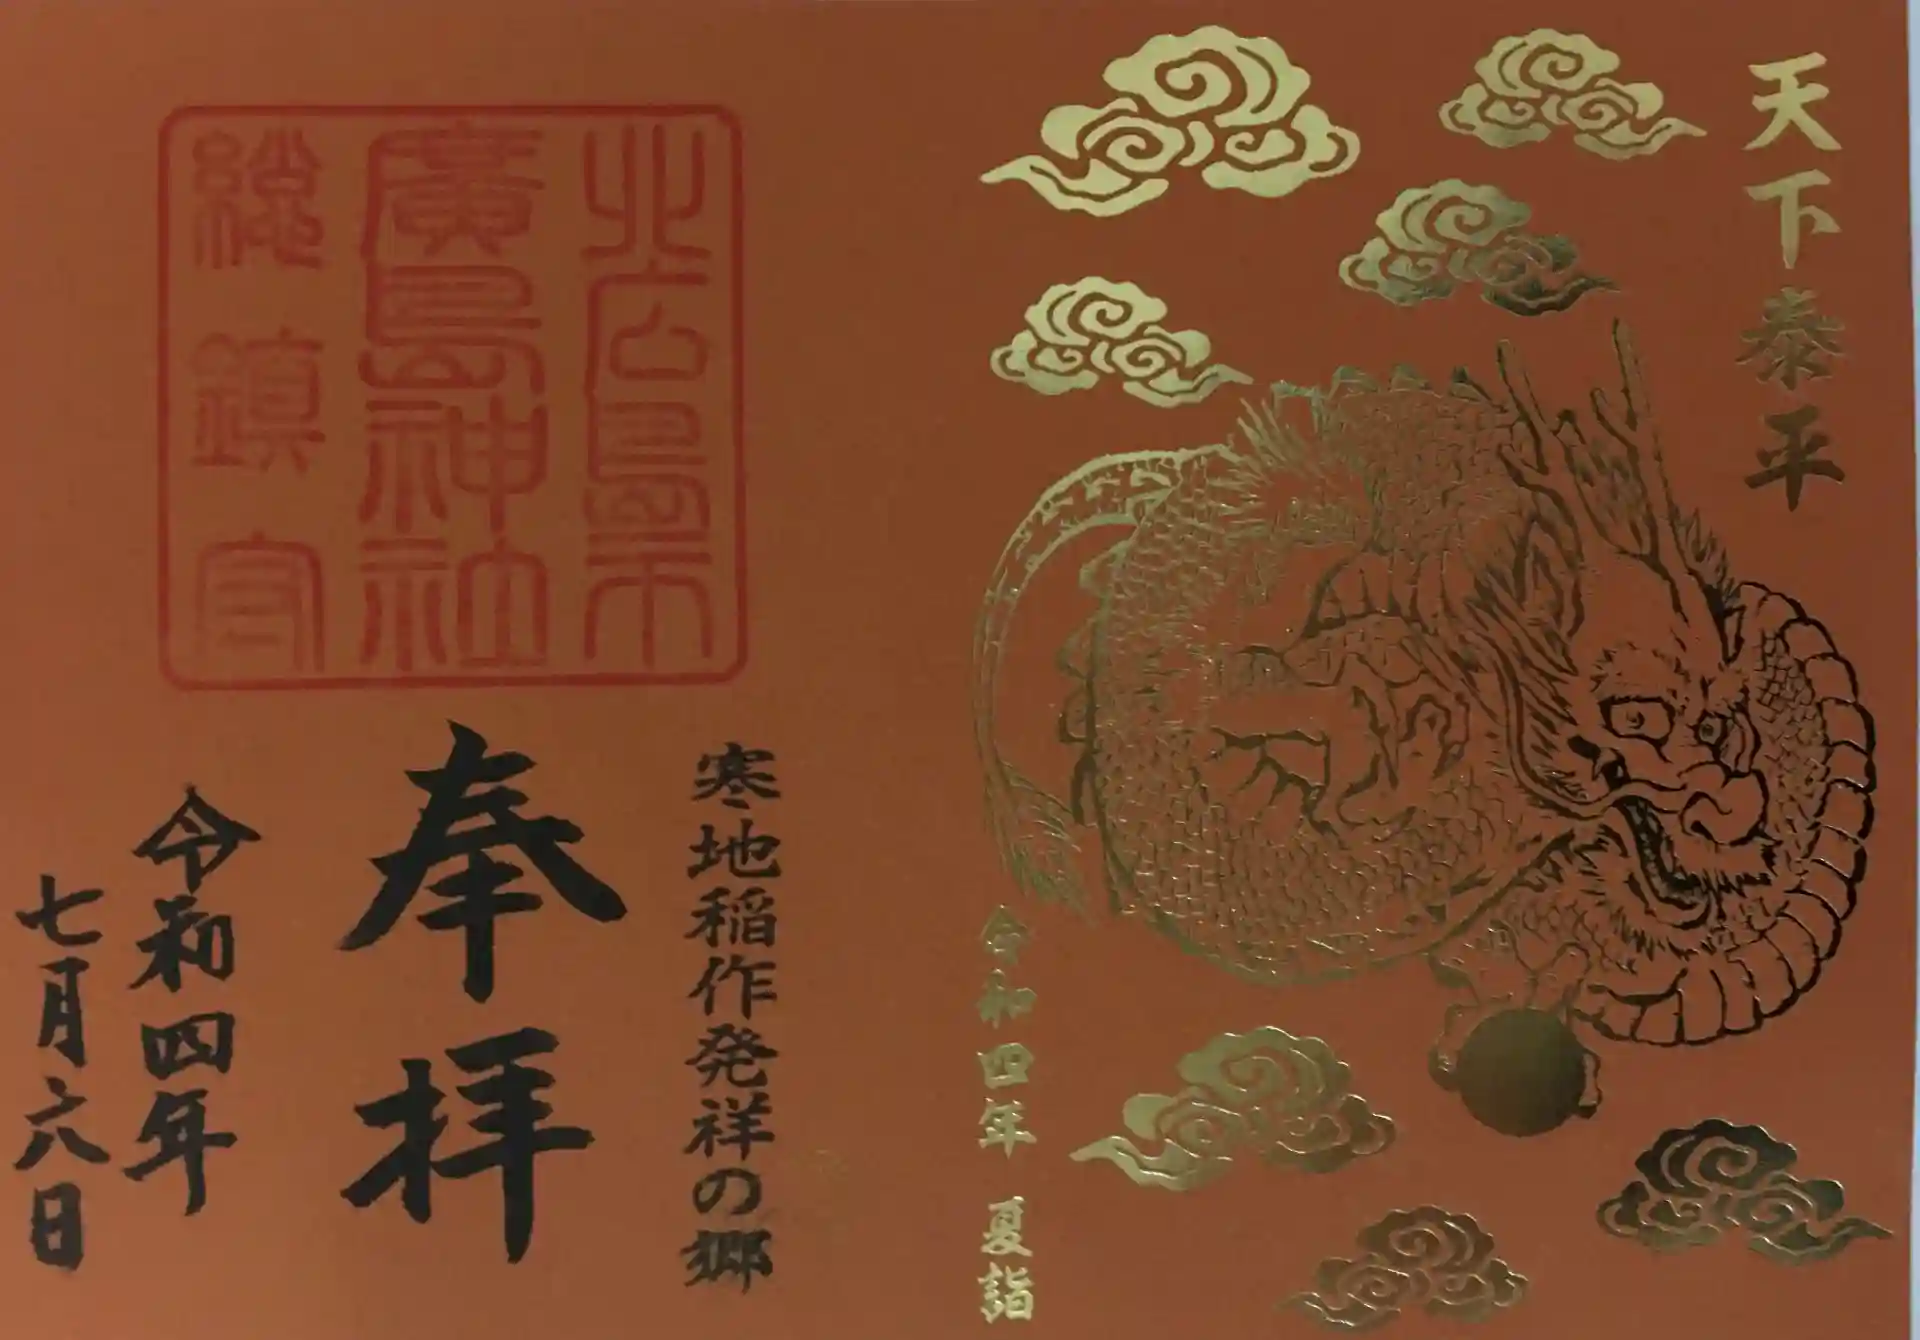 天下泰平
令和四年 夏詣
北広島市
廣島神社
総鎮守
寒地稲作発祥の郷
奉拝
令和四年
七月六日